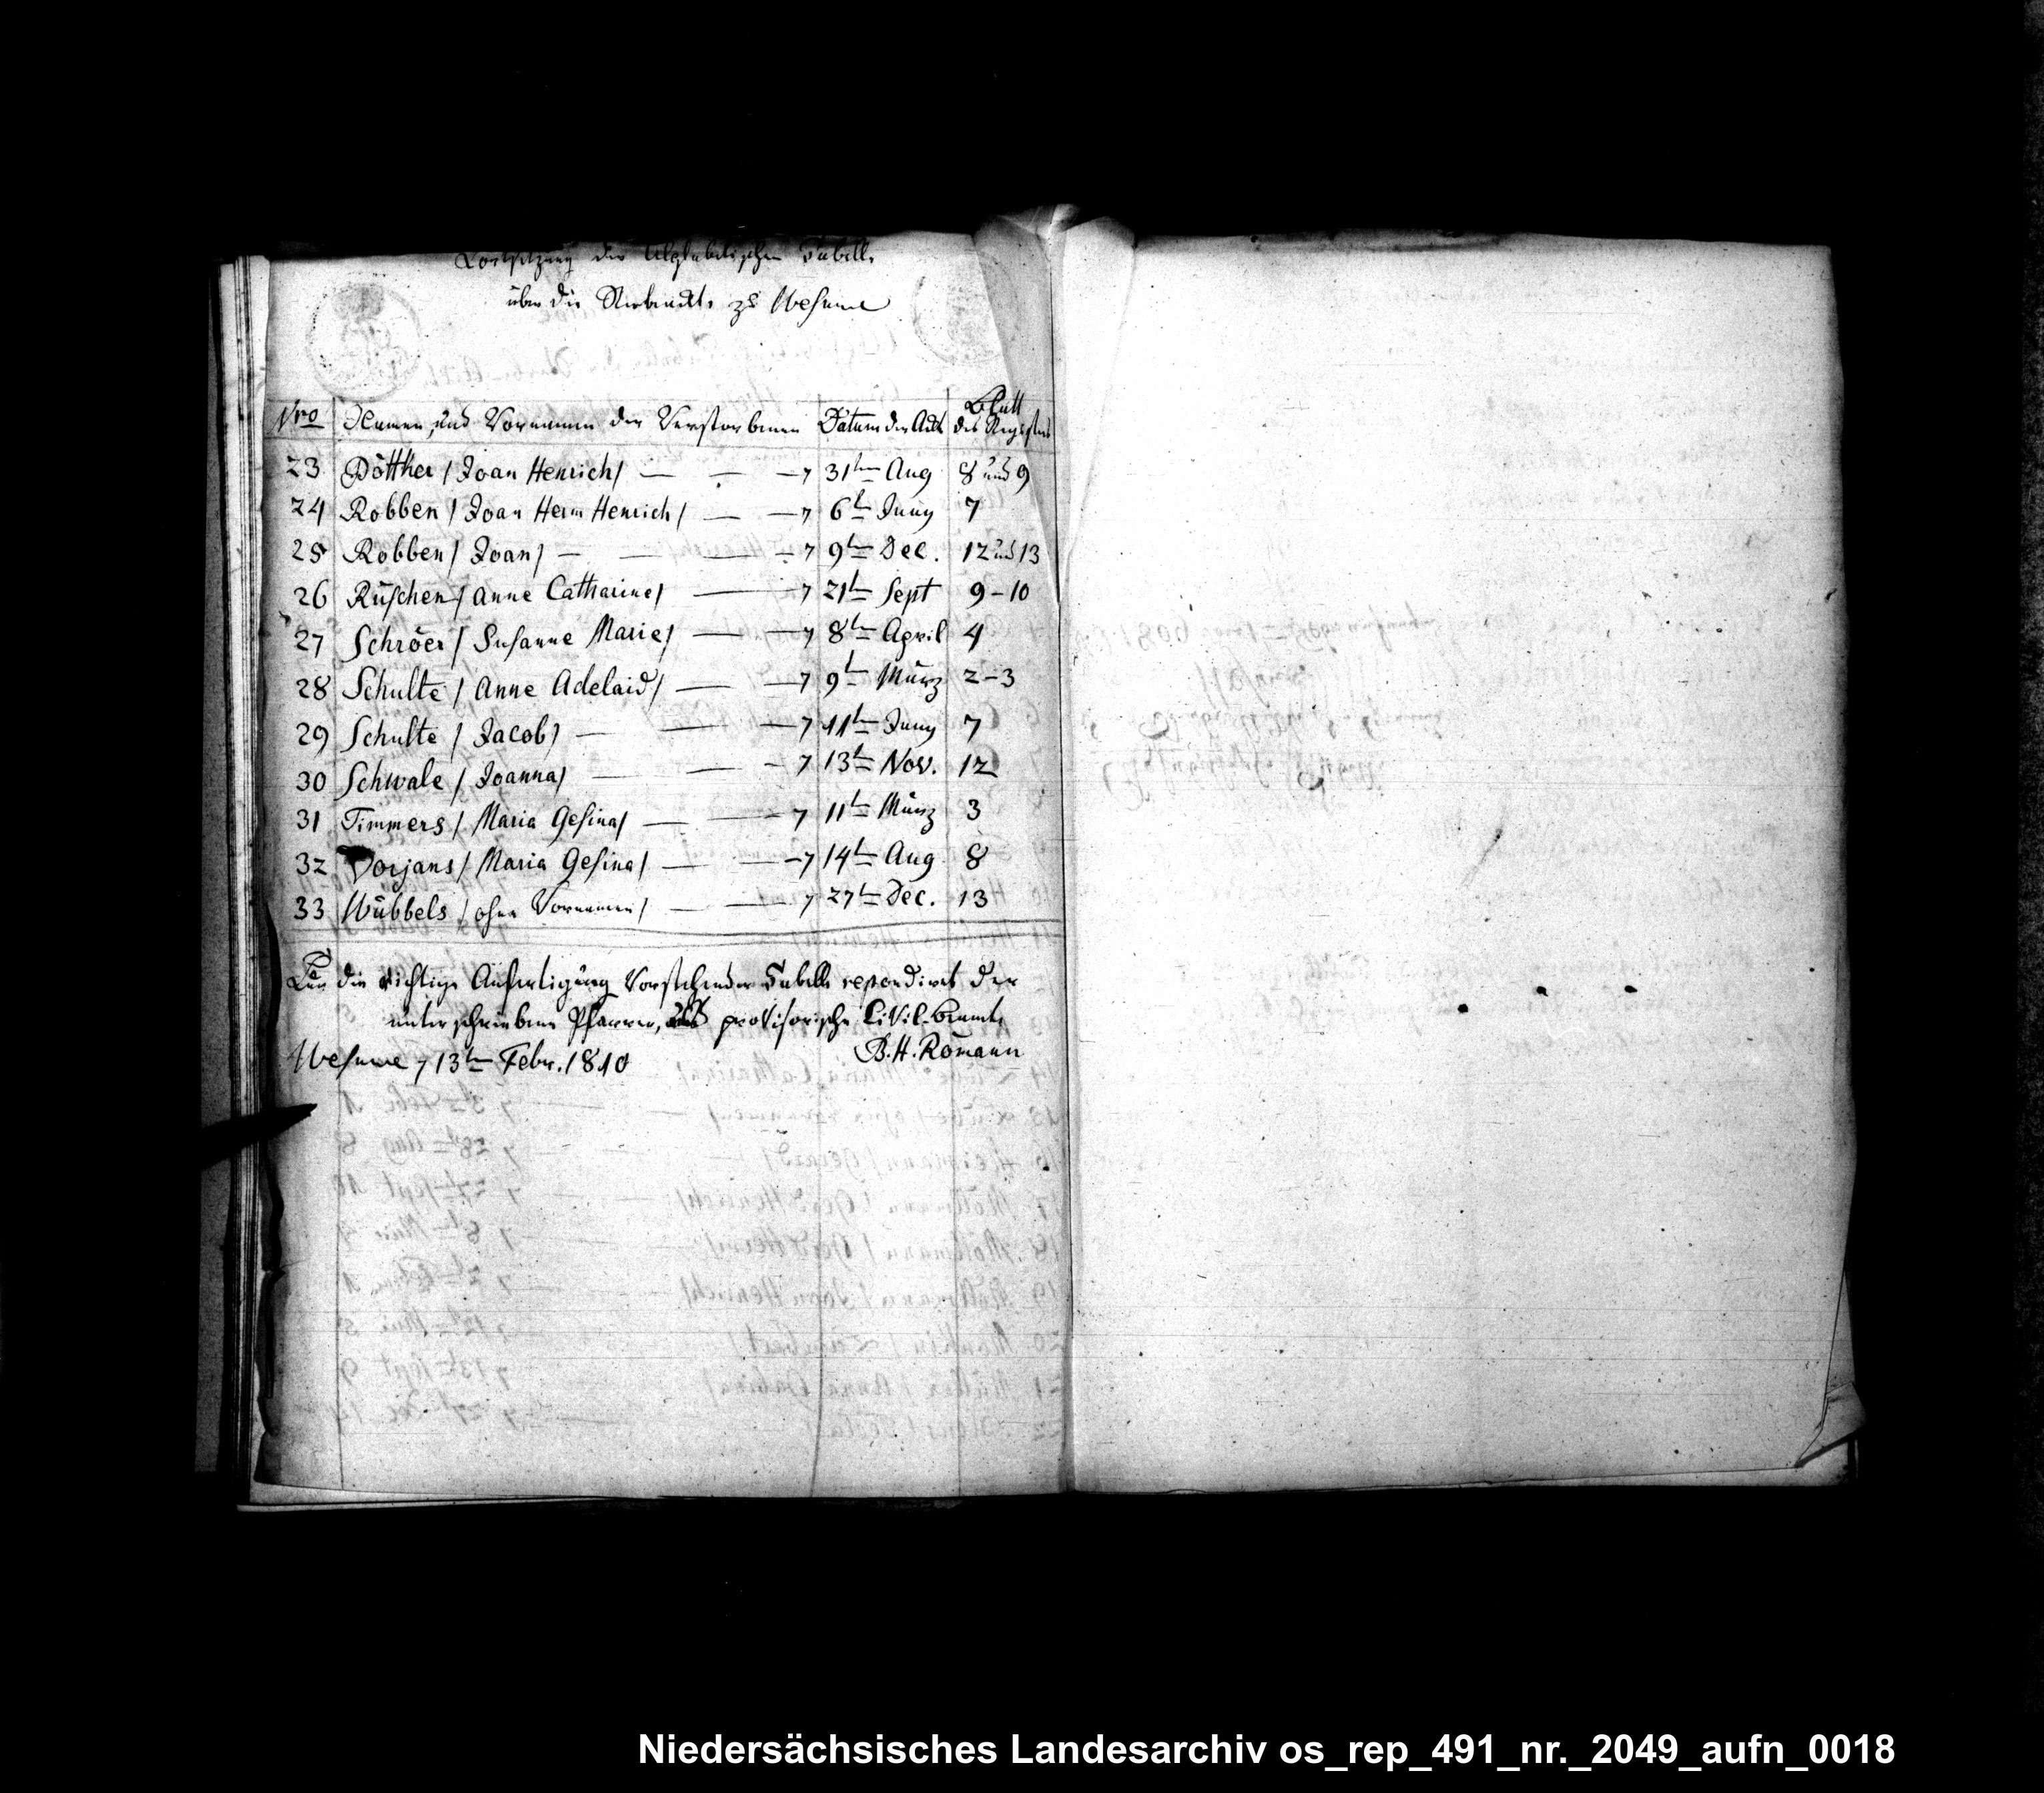 Fortsetzung der Alphabetischen Tabelle
über die Sterbeackte zu Wesuwe
Nro Namen, und Vornamen der Verstorbenen Datum der Ackte Blatt des Registers
23 Pötther / Joan Henrich / — — — 7 31ten Aug 8 und 9
24 Robben / Joan Herm Henrich / — — 7 6t Juny 7
25 Robben / Joan / — — — — 7 9ten Dec. 12 und 13
26 Rüschen / Anne Catharine / — — 7 21ten Sept 9-10
27 Schröer / Susanne Marie / — — 7 8ten April 4
28 Schulte / Anne Adelaid / — — 7 9t März 2-3
29 Schulte / Jacob / — — — 7 11ten Juny 7
30 Schwale / Joanna / — — — 7 13t Nov. 12
31 Timmers / Maria Gesina / — — 7 11t März 3
32 Vorjans / Maria Gesina / — — 7 14t Aug 8
33 Wübbels / ohne Vornamen / — — 7 27t Dec. 13
Für die richtige Anfertigung vorstehender Tabelle repondiret der
unterschriebene Pfarrer, als provisorische Civil-Beamte
Wesuwe 7 13ten Febr. 1810 B. H. Römann
Niedersächsisches Landesarchiv os_rep_491_nr._2049_aufn_0018